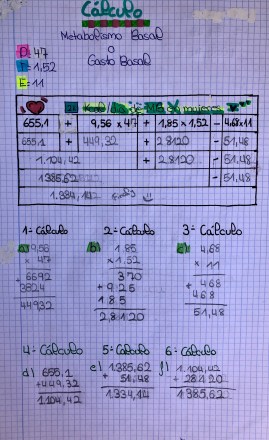 Cálculo
Metabolismo Basal
o
Gasto Basal
P: 47
1,52
E: 11
655,1 + 9,56 x 47 + 1,85 x 1,52 - 4,68 x 11
655,1 + 449,32 + 28120 - 51,48
1.104,42 + 28120 - 51,48
1385,62 - 51,48
1- Cálculo 2- Cálculo 3- Cálculo
a) 9,56 b) 1.85 c) 4,68
x 47 x 1.52 x 11
6692 370 4,68
3824 + 925 468
44932 185 51,48
2,8120
4- Cálculo 5- Cálculo 6- Cálculo
d) 655,1 e) 1.385,62 f) 1.104,42
+449,32 - 51,48 + 28120
1.104,42 1.334,14 1385,62